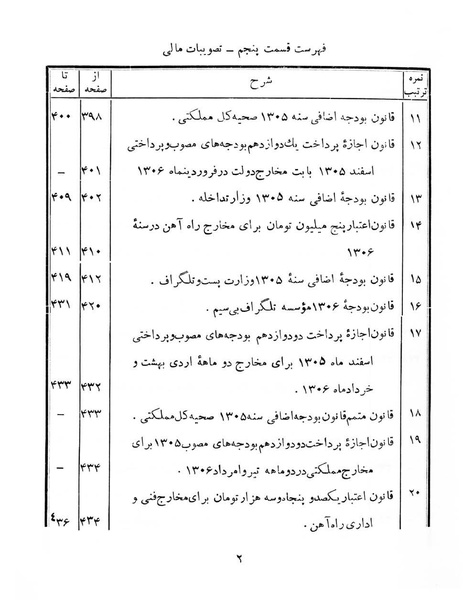 فهرست قسمت پنجم ــ تصویبات مالی
نمره ترتیب شرح از صفحه تا صفحه
۱۱ قانون بودجه اضافی سنه ۱۳۰۵ صحیه کل مملکتی . ۳۹۸ ۴۰۰
۱۲ قانون اجازهٔ پرداخت یك دوازدهم بودجه‌های مصوب و پرداختی
اسفند ۱۳۰۵ بابت مخارج دولت در فروردینماه ۱۳۰۶ ۴۰۱ ــ
۱۳ قانون بودجهٔ اضافی سنه ۱۳۰۵ وزارتداخله . ۴۰۲ ۴۰۹
۱۴ قانون اعتبار پنج میلیون تومان برای مخارج راه آهن در سنهٔ
۱۳۰۶ ۴۱۰ ۴۱۱
۱۵ قانون بودجهٔ اضافی سنهٔ ۱۳۰۵ وزارت پست و تلگراف . ۴۱۲ ۴۱۹
۱۶ قانون بودجهٔ ۱۳۰۶ مؤسسه تلگراف بی‌سیم . ۴۲۰ ۴۳۱
۱۷ قانون اجازهٔ پرداخت دو دوازدهم بودجه‌های مصوب و پرداختی
اسفند ماه ۱۳۰۵ برای مخارج دو ماههٔ اردی بهشت و
خرداد ماه ۱۳۰۶ . ۴۳۲ ۴۳۳
۱۸ قانون متمم قانون بودجه اضافی سنه ۱۳۰۵ صحیه کل مملکتی . ۴۳۳ ــ
۱۹ قانون اجازهٔ پرداخت دو دوازدهم بودجه‌های مصوب ۱۳۰۵ برای
مخارج مملکتی در دو ماهه تیر و امرداد ۱۳۰۶ . ۴۳۴ ــ
۲۰ قانون اعتبار یکصد و پنجاه و سه هزار تومان برای مخارج فنی و
اداری راه آهن . ۴۳۴ ۴۳۶
۲